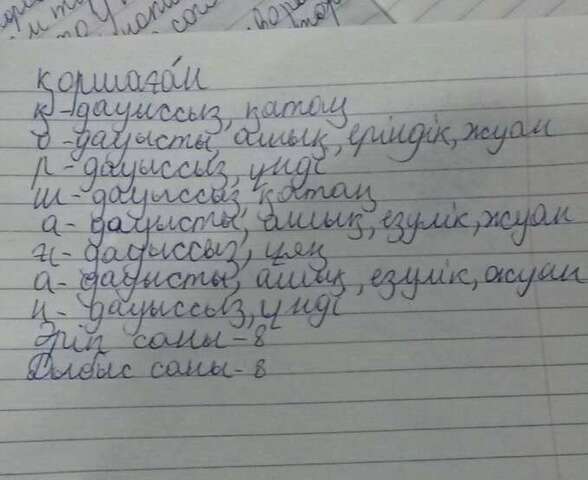 қоршаған
қ-дауыссыз, қатаң
о-дауысты, ашық, еріндік, жуан
р-дауыссыз, үнді
ш-дауыссыз, қатаң
а-дауысты, ашық, езулік, жуан
ғ-дауыссыз, ұяң
а-дауысты, ашық, езулік, жуан
н-дауыссыз, үнді
Әріп саны-8
Дыбыс саны-8